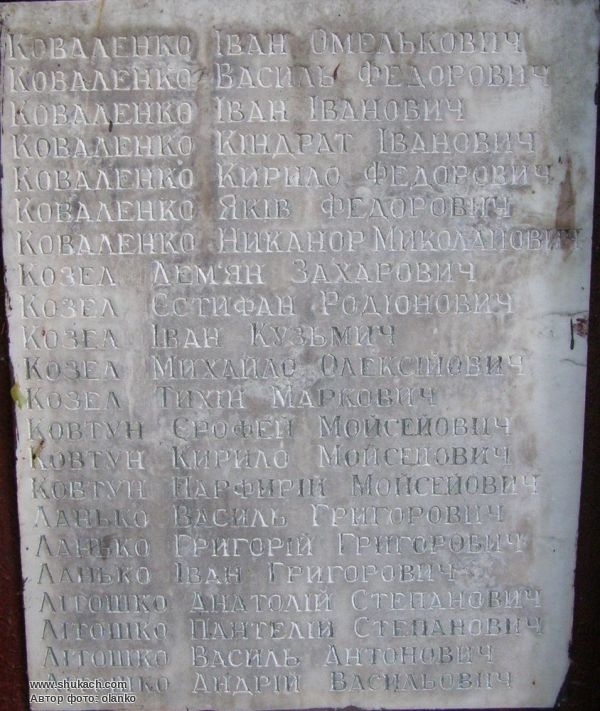 Коваленко Іван Омелькович
Коваленко Василь Федорович
Коваленко Іван Іванович
Коваленко Кіндрат Іванович
Коваленко Кирило Федорович
Коваленко Яків Федорович
Коваленко Никанор Миколайович
Козел Дем'ян Захарович
Козел Єстифан Родіонович
Козел Іван Кузьмич
Козел Михайло Олексійович
Козел Тихін Маркович
Ковтун Єрофей Мойсейович
Ковтун Кирило Мойсейович
Ковтун Парфирій Мойсейович
Ланько Василь Григорович
Ланько Григорій Григорович
Ланько Іван Григорович
Літошко Анатолій Степанович
Літошко Пантелій Степанович
Літошко Василь Антонович
Андрій Васильович
www.shukach.com
Автор фото: olanko